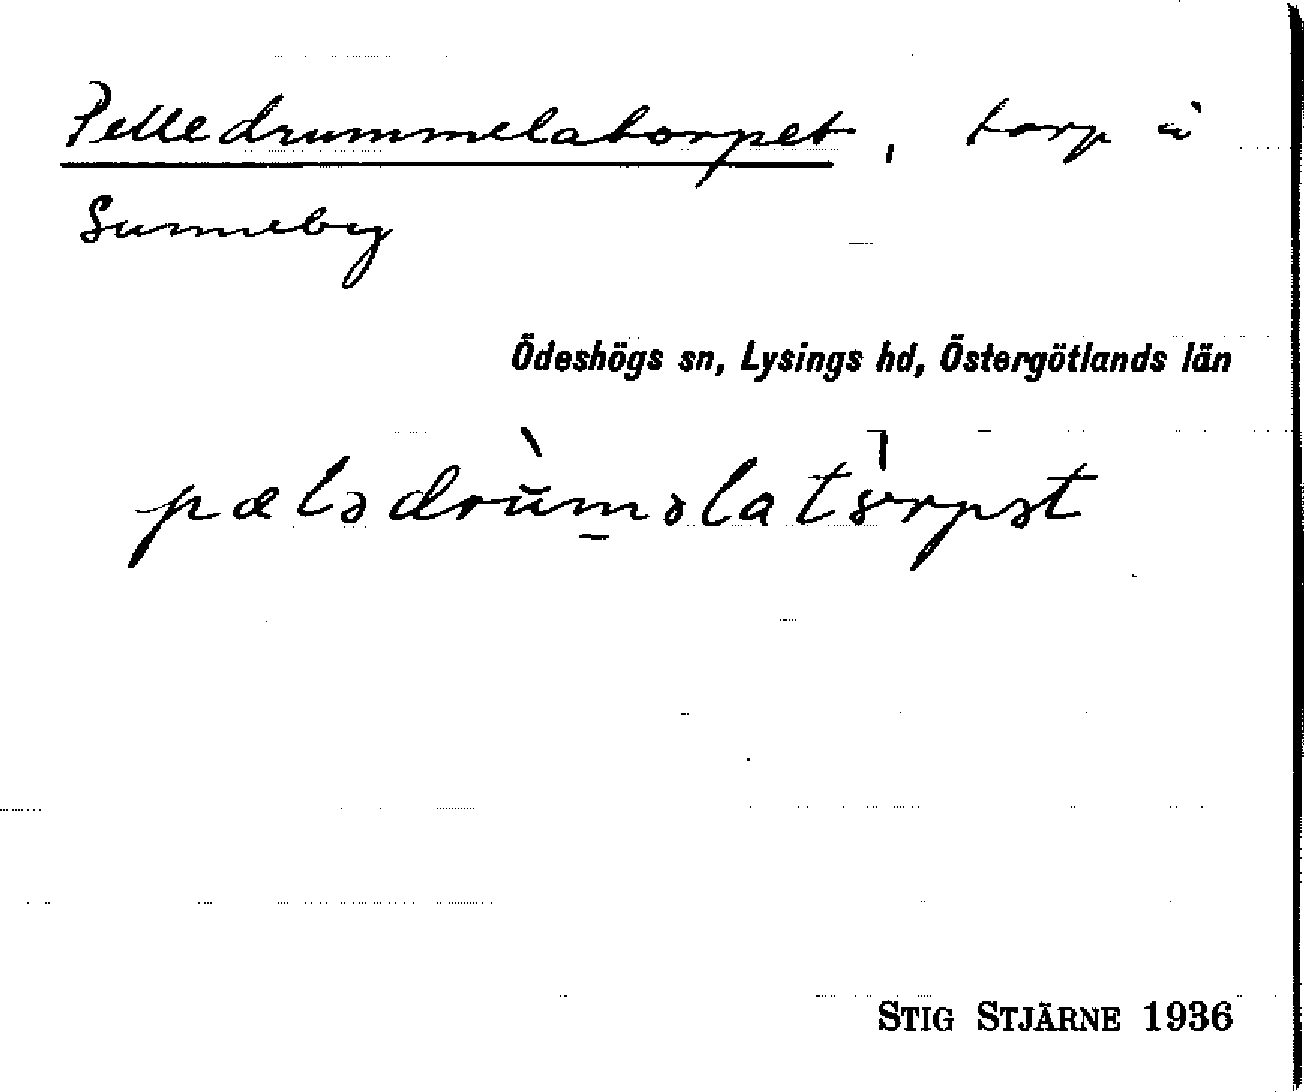 Pelledrummelatorpet, torp i
Sunneby
Ödeshögs sn, Lysings hd, Östergötlands län
pælədrùməlatɔrpət
STIG STJÄRNE 1936